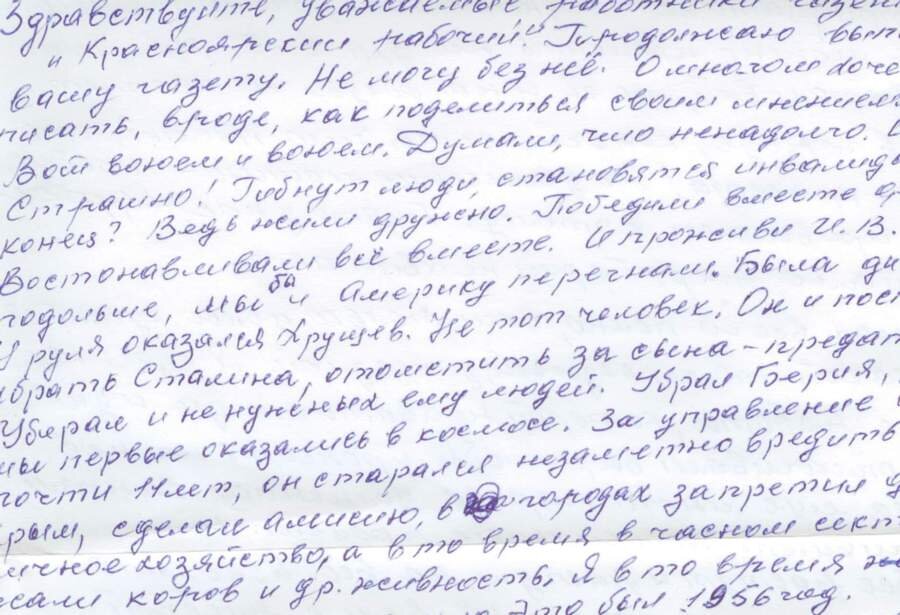 Здравствуйте, уважаемые работники газет
„Красноярский рабочий". Продолжаю вып
вашу газету. Не могу без неё. О многом хоче
писать, вроде, как поделиться своим мнением
Вот воюем и воюем. Думали, что ненадолго.
Страшно! Гибнут люди, становятся инвалид
конец? Ведь жили дружно. Победили вместе
Востонавливали всё вместе. И проживи И.В.
подольше, мы бы и Америку перечнали. Была
У руля оказался Хрущев. Не тот человек. Он и пост
убрать Сталина, отомстить за сына-предат
Убирал и не нужных ему людей. Убрал Берия,
мы первые оказались в космосе. За управление
почти 11 лет, он старался незаметно вредить
рым, сделал амисию, в городах запретил
личное хозяйство, а в то время в часном сект
жали коров и др. живность. Я в то время
Это был 1956 год.